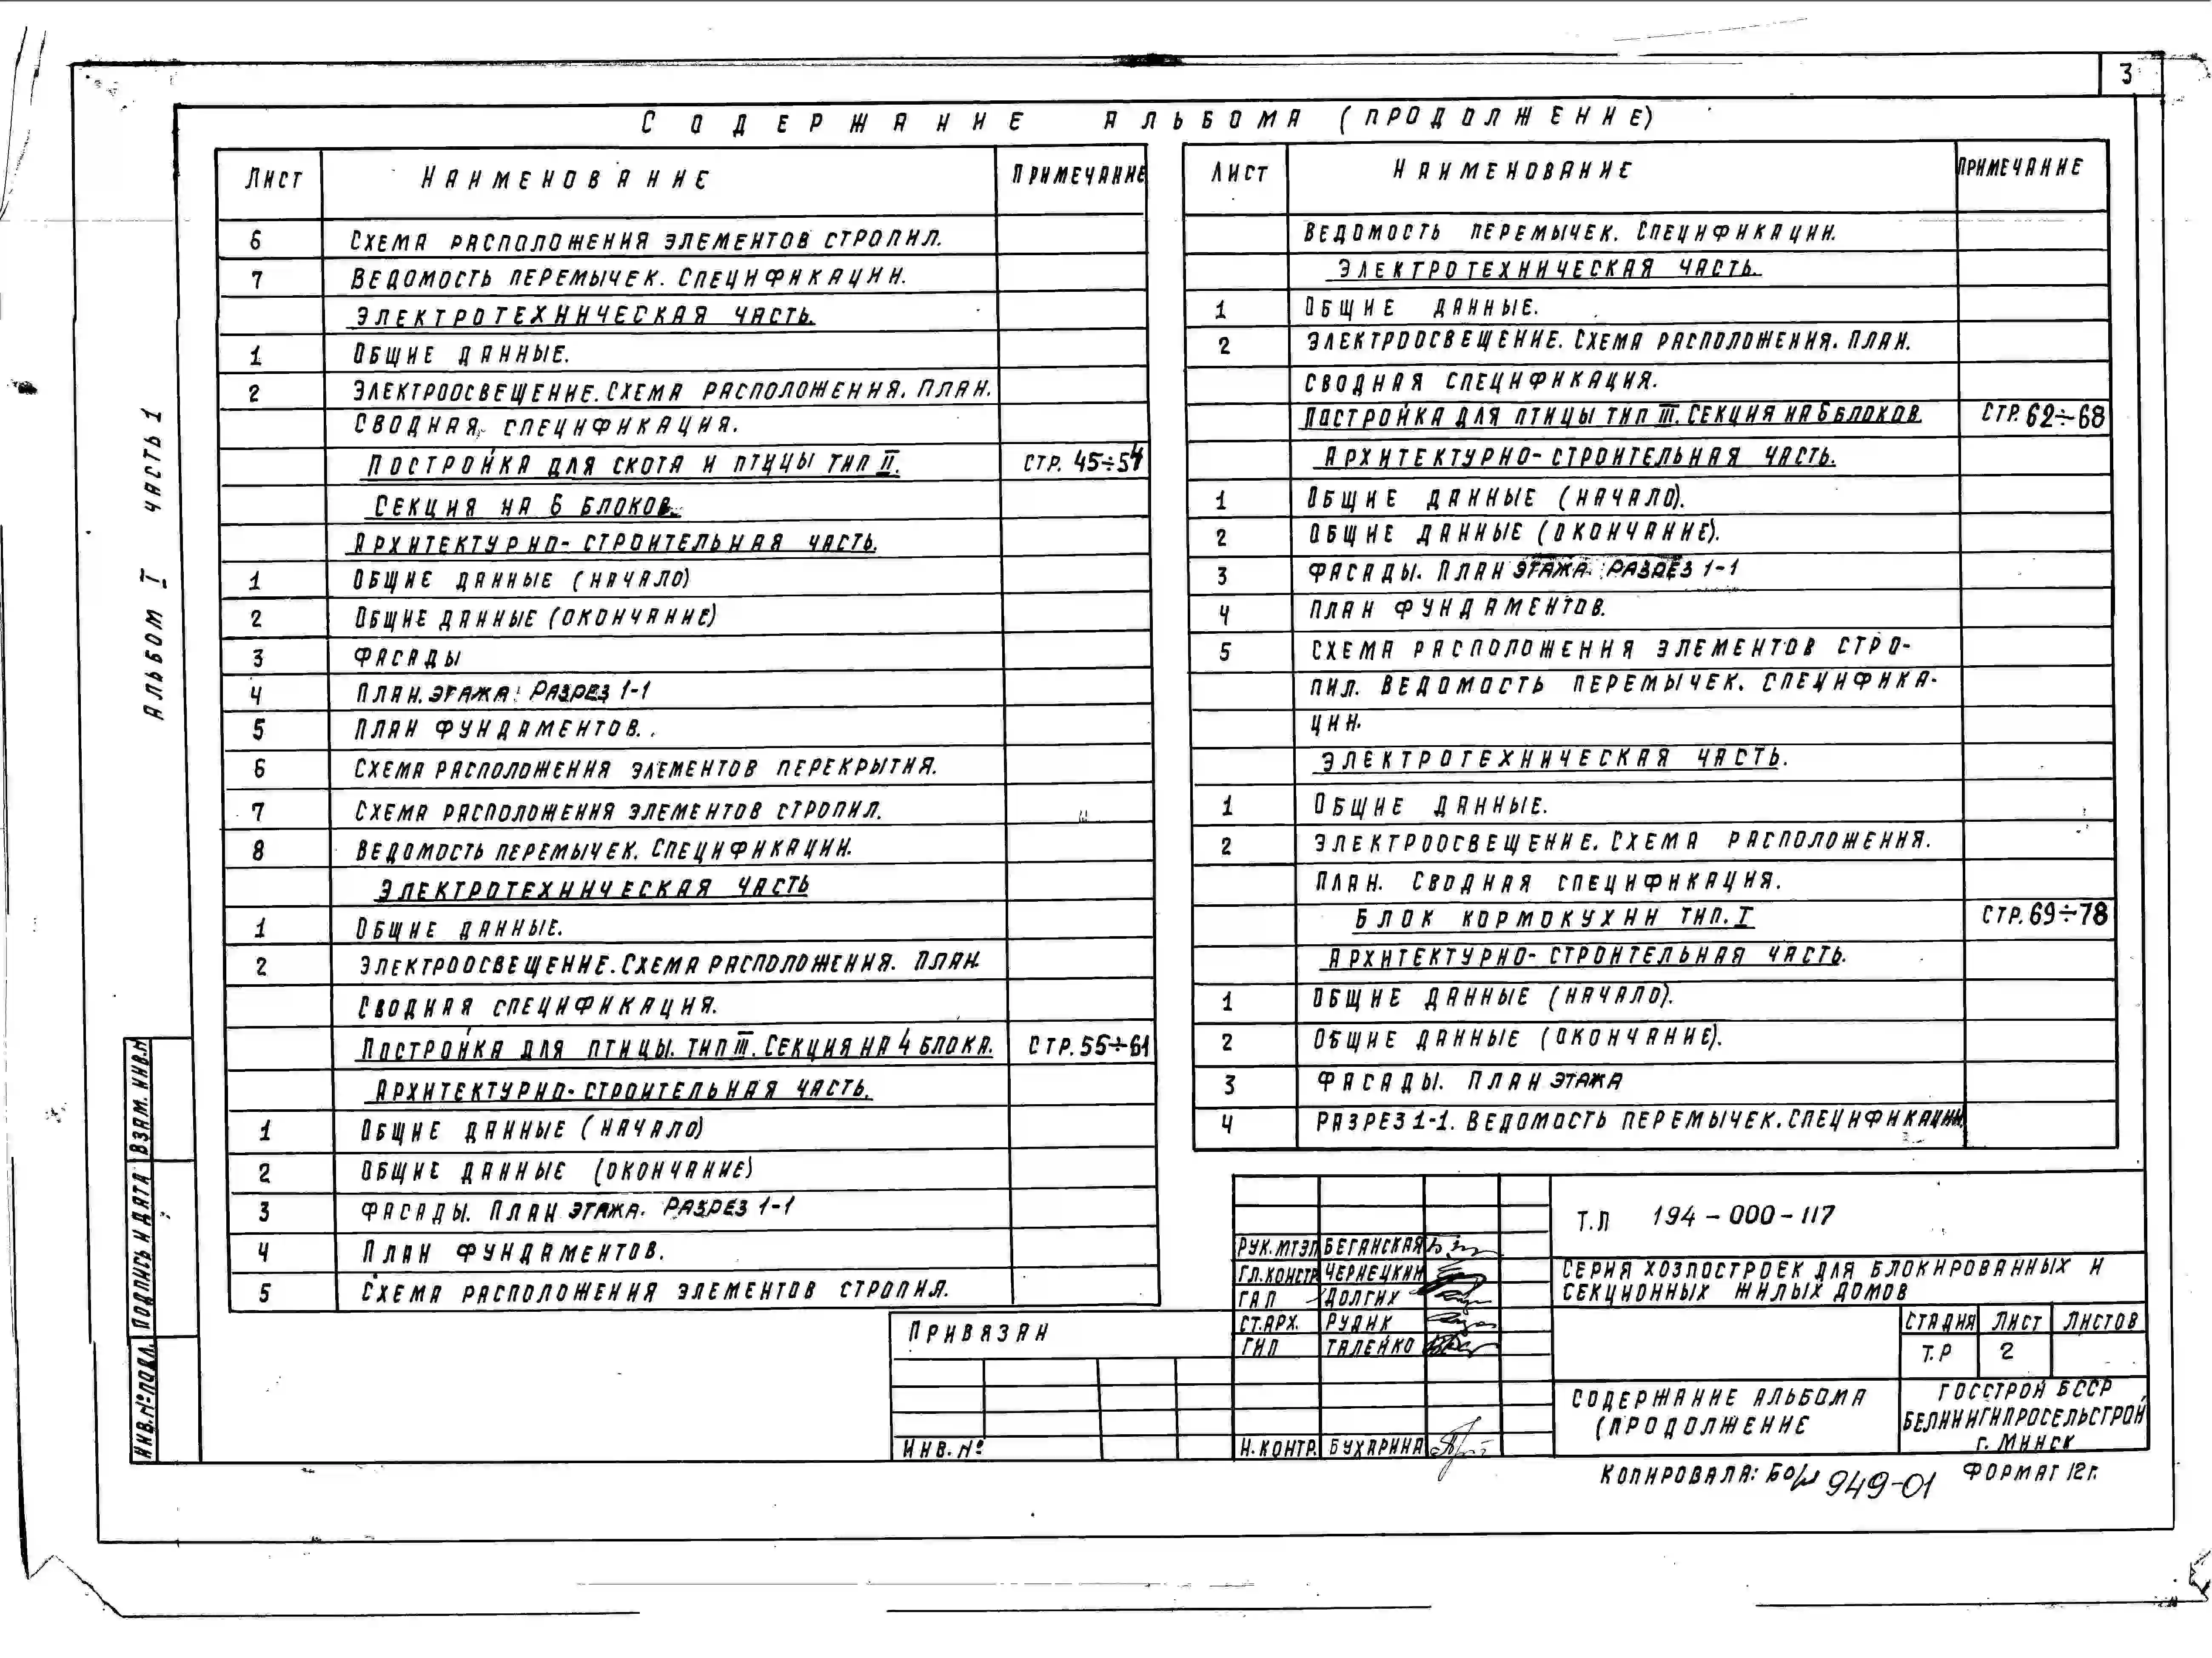 3
СОДЕРЖАНИЕ АЛЬБОМА (ПРОДОЛЖЕНИЕ)
АЛЬБОМ I ЧАСТЬ 1
ЛИСТ НАИМЕНОВАНИЕ ПРИМЕЧАНИЕ
6 СХЕМА РАСПОЛОЖЕНИЯ ЭЛЕМЕНТОВ СТРОПИЛ.
7 ВЕДОМОСТЬ ПЕРЕМЫЧЕК. СПЕЦИФИКАЦИИ.
ЭЛЕКТРОТЕХНИЧЕСКАЯ ЧАСТЬ.
1 ОБЩИЕ ДАННЫЕ.
2 ЭЛЕКТРООСВЕЩЕНИЕ. СХЕМА РАСПОЛОЖЕНИЯ. ПЛАН.
СВОДНАЯ СПЕЦИФИКАЦИЯ.
ПОСТРОЙКА ДЛЯ СКОТА И ПТИЦЫ ТИП II. СТР. 45÷54
СЕКЦИЯ НА 6 БЛОКОВ.
АРХИТЕКТУРНО-СТРОИТЕЛЬНАЯ ЧАСТЬ.
1 ОБЩИЕ ДАННЫЕ (НАЧАЛО)
2 ОБЩИЕ ДАННЫЕ (ОКОНЧАНИЕ)
3 ФАСАДЫ
4 ПЛАН. ЭТАЖА. РАЗРЕЗ 1-1
5 ПЛАН ФУНДАМЕНТОВ.
6 СХЕМА РАСПОЛОЖЕНИЯ ЭЛЕМЕНТОВ ПЕРЕКРЫТИЯ.
7 СХЕМА РАСПОЛОЖЕНИЯ ЭЛЕМЕНТОВ СТРОПИЛ.
8 ВЕДОМОСТЬ ПЕРЕМЫЧЕК. СПЕЦИФИКАЦИИ.
ЭЛЕКТРОТЕХНИЧЕСКАЯ ЧАСТЬ
1 ОБЩИЕ ДАННЫЕ.
2 ЭЛЕКТРООСВЕЩЕНИЕ. СХЕМА РАСПОЛОЖЕНИЯ. ПЛАН.
СВОДНАЯ СПЕЦИФИКАЦИЯ.
ПОСТРОЙКА ДЛЯ ПТИЦЫ. ТИП III. СЕКЦИЯ НА 4 БЛОКА. СТР. 55÷61
АРХИТЕКТУРНО-СТРОИТЕЛЬНАЯ ЧАСТЬ.
1 ОБЩИЕ ДАННЫЕ (НАЧАЛО)
2 ОБЩИЕ ДАННЫЕ (ОКОНЧАНИЕ)
3 ФАСАДЫ. ПЛАН ЭТАЖА. РАЗРЕЗ 1-1
4 ПЛАН ФУНДАМЕНТОВ.
5 СХЕМА РАСПОЛОЖЕНИЯ ЭЛЕМЕНТОВ СТРОПИЛ.
ЛИСТ НАИМЕНОВАНИЕ ПРИМЕЧАНИЕ
ВЕДОМОСТЬ ПЕРЕМЫЧЕК. СПЕЦИФИКАЦИИ.
ЭЛЕКТРОТЕХНИЧЕСКАЯ ЧАСТЬ.
1 ОБЩИЕ ДАННЫЕ.
2 ЭЛЕКТРООСВЕЩЕНИЕ. СХЕМА РАСПОЛОЖЕНИЯ. ПЛАН.
СВОДНАЯ СПЕЦИФИКАЦИЯ.
ПОСТРОЙКА ДЛЯ ПТИЦЫ ТИП III. СЕКЦИЯ НА 6 БЛОКОВ. СТР. 62÷68
АРХИТЕКТУРНО-СТРОИТЕЛЬНАЯ ЧАСТЬ.
1 ОБЩИЕ ДАННЫЕ (НАЧАЛО).
2 ОБЩИЕ ДАННЫЕ (ОКОНЧАНИЕ).
3 ФАСАДЫ. ПЛАН ЭТАЖА. РАЗРЕЗ 1-1
4 ПЛАН ФУНДАМЕНТОВ.
5 СХЕМА РАСПОЛОЖЕНИЯ ЭЛЕМЕНТОВ СТРО-
ПИЛ. ВЕДОМОСТЬ ПЕРЕМЫЧЕК. СПЕЦИФИКА-
ЦИИ.
ЭЛЕКТРОТЕХНИЧЕСКАЯ ЧАСТЬ.
1 ОБЩИЕ ДАННЫЕ.
2 ЭЛЕКТРООСВЕЩЕНИЕ. СХЕМА РАСПОЛОЖЕНИЯ.
ПЛАН. СВОДНАЯ СПЕЦИФИКАЦИЯ.
БЛОК КОРМОКУХНИ ТИП. I СТР. 69÷78
АРХИТЕКТУРНО-СТРОИТЕЛЬНАЯ ЧАСТЬ.
1 ОБЩИЕ ДАННЫЕ (НАЧАЛО).
2 ОБЩИЕ ДАННЫЕ (ОКОНЧАНИЕ).
3 ФАСАДЫ. ПЛАН ЭТАЖА
4 РАЗРЕЗ 1-1. ВЕДОМОСТЬ ПЕРЕМЫЧЕК. СПЕЦИФИКАЦИИ.
ВЗАМ. ИНВ.N
ПОДПИСЬ И ДАТА
ИНВ.№ ПОДЛ.
ПРИВЯЗАН
ИНВ. №
РУК. МТЭП БЕГАНСКАЯ
ГЛ. КОНСТР ЧЕРНЕЦКИЙ
ГАП ДОЛГИХ
СТ. АРХ. РУДИК
ГИП ТАЛЕЙКО
Н. КОНТР. БУХАРИНА
Т.П 194-000-117
СЕРИЯ ХОЗПОСТРОЕК ДЛЯ БЛОКИРОВАННЫХ И
СЕКЦИОННЫХ ЖИЛЫХ ДОМОВ
СТАДИЯ ЛИСТ ЛИСТОВ
Т.Р 2
СОДЕРЖАНИЕ АЛЬБОМА
(ПРОДОЛЖЕНИЕ
ГОССТРОЙ БССР
БЕЛНИИГИПРОСЕЛЬСТРОЙ
г. МИНСК
КОПИРОВАЛА: 949-01 ФОРМАТ 12г.